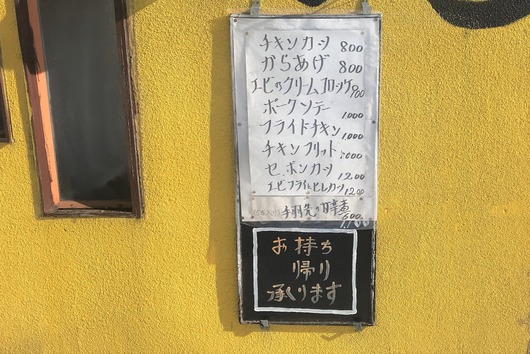 チキンカツ 800
からあげ 800
エビのクリームコロッケ 900
ポークソテー 1000
フライドチキン 1000
チキンフリット 1000
セ.ポンカツ 1200
エビフライとヒレカツ 1200
手羽先の甘辛煮 600
お持ち
帰り
承ります